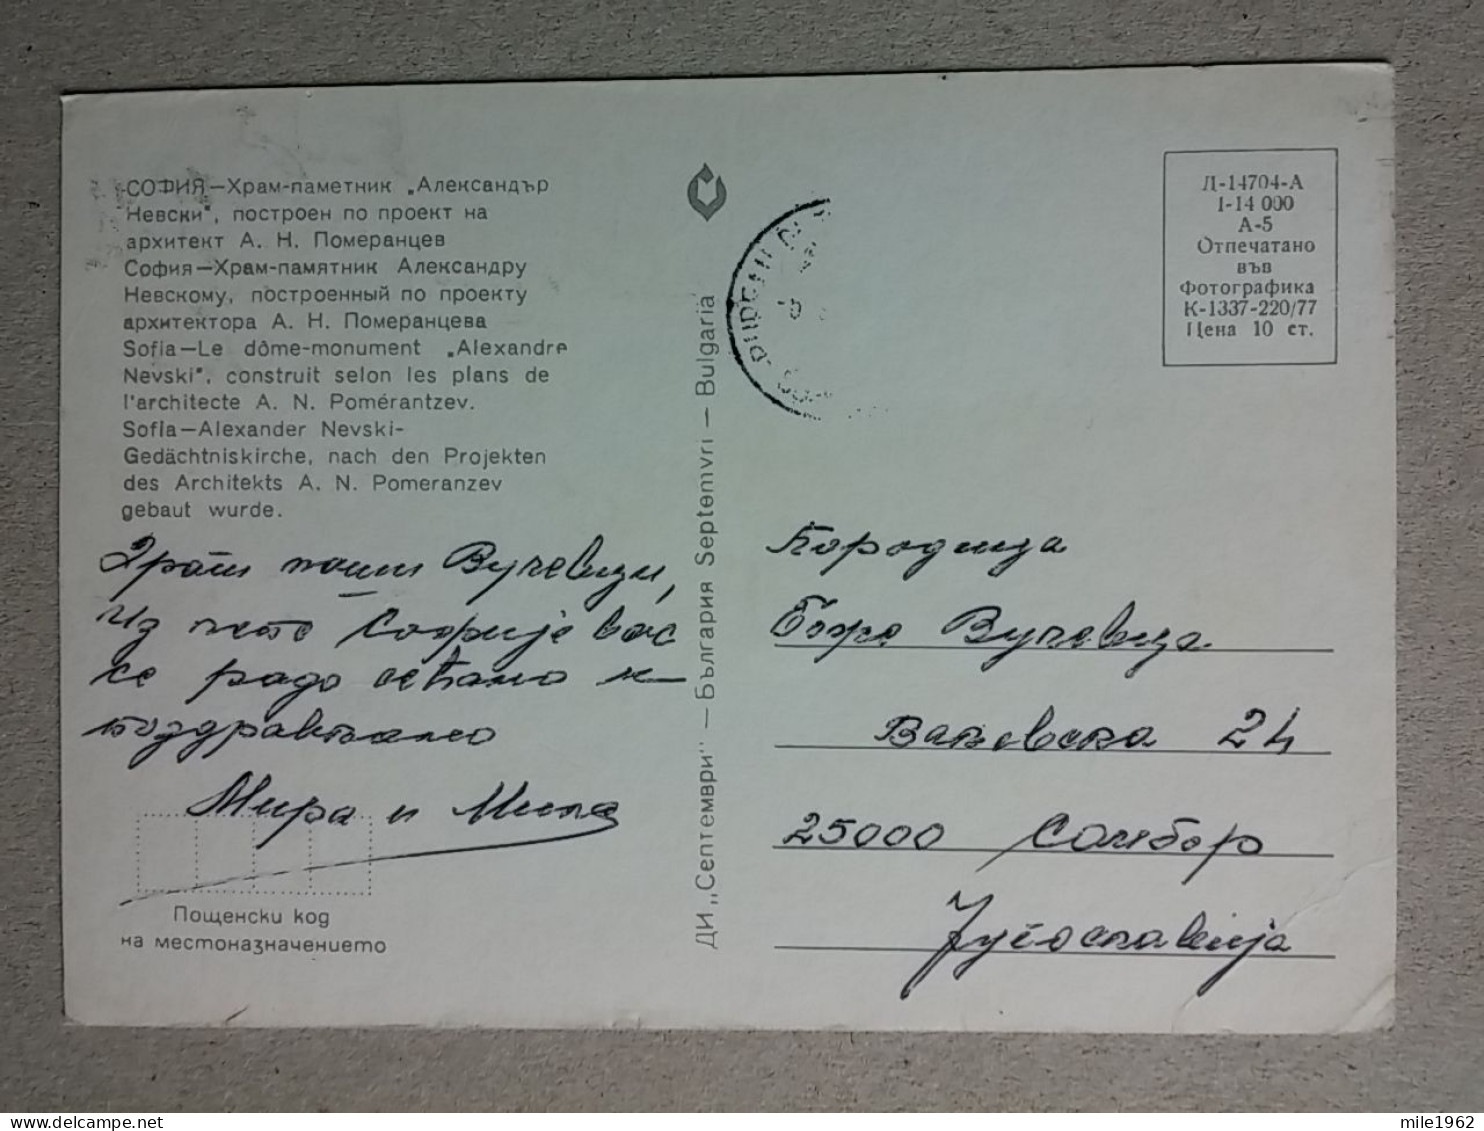 СОФИЯ—Храм-паметник „Александър
Невски", построен по проект на
архитект А. Н. Померанцев
София—Храм-памятник Александру
Невскому, построенный по проекту
архитектора А. Н. Померанцева
Sofia—Le dôme-monument „Alexandre
Nevski", construit selon les plans de
l'architecte A. N. Pomérantzev.
Sofia—Alexander Nevski-
Gedächtniskirche, nach den Projekten
des Architekts A. N. Pomeranzev
gebaut wurde.
Драги наши Вучевићи,
Из лепе Софије вас
се радо сећамо и
поздрављамо
Мира и Миле
Пощенски код
на местоназначението
ДИ „Септември" — България Septemvri — Bulgaria
Л-14704-А
1-14 000
А-5
Отпечатано
във
Фотографика
К-1337-220/77
Цена 10 ст.
Породица
Вучевића
24
25000 Сомбор
Југославија
mile1962